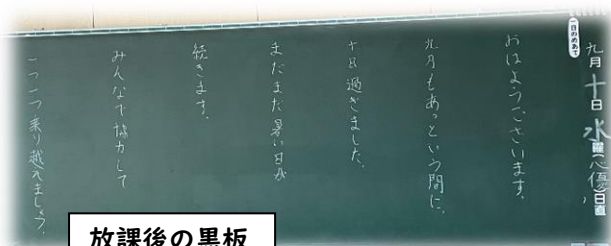 九月十日水曜 心優 日直
一日のめあて
おはようございます。
九月もあっという間に、
十日過ぎました。
まだまだ暑い日が
続きます。
みんなで協力して
一つ一つ乗り越えましょう。
放課後の黒板